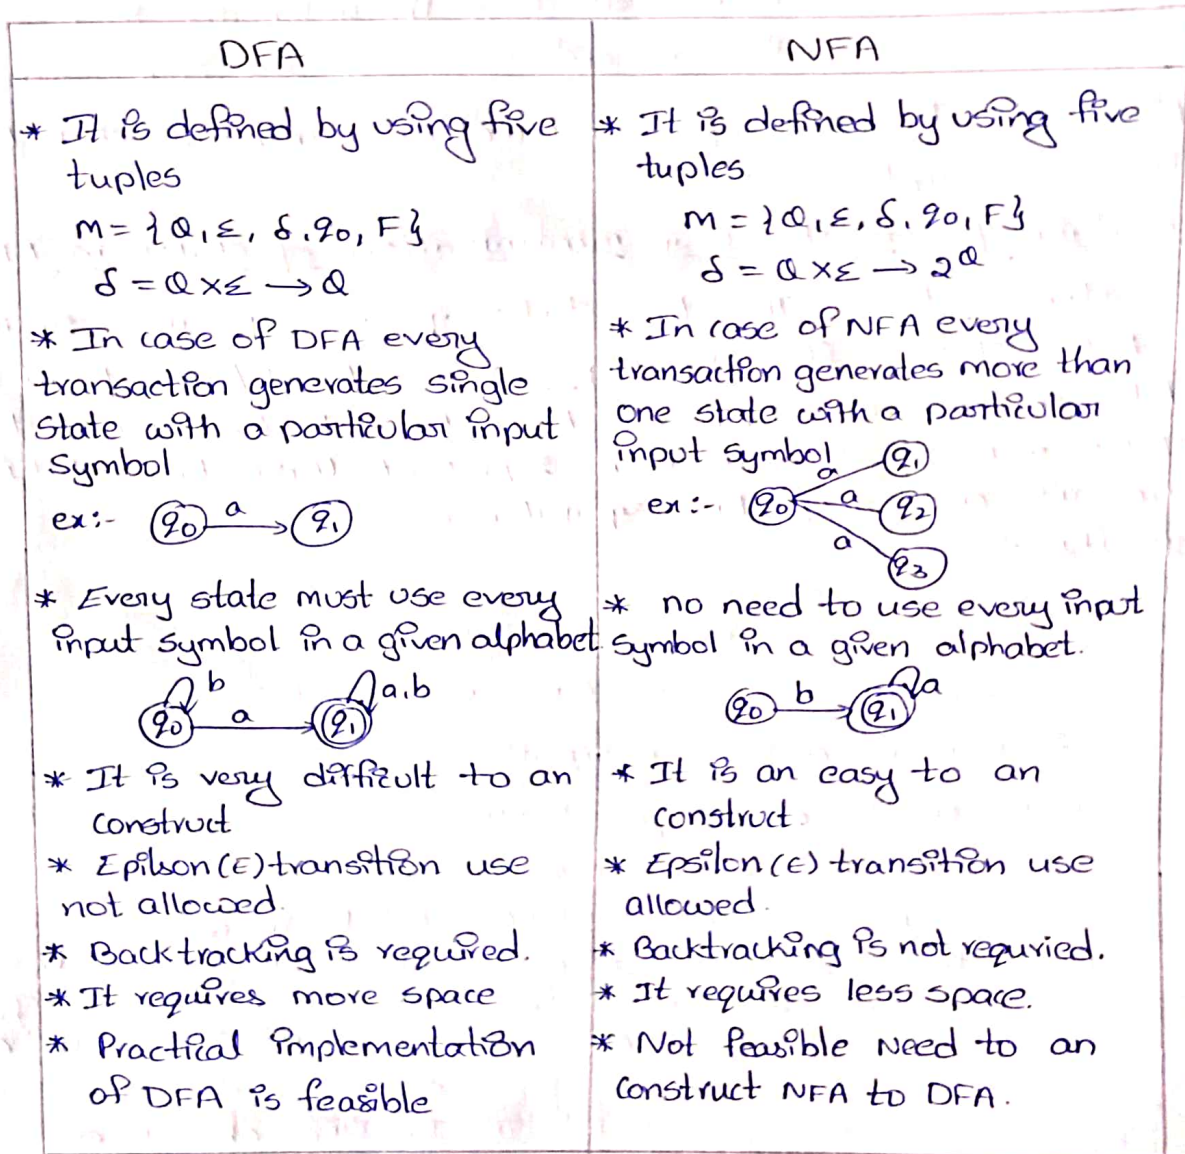 DFA
* It is defined by using five
tuples
M = {Q, Σ, δ, q0, F}
δ = Q × Σ → Q
* In case of DFA every
transaction generates single
State with a particular input
Symbol
ex:- q0 a q1
* Every state must use every
input symbol in a given alphabet
b a,b
q0 a q1
* It is very difficult to an
construct
* Epilson (E) transition use
not allowed.
* Backtracking is required.
* It requires more space
* Practical implementation
of DFA is feasible
NFA
* It is defined by using five
tuples
M = {Q, Σ, δ, q0, F}
δ = Q × Σ → 2^Q
* In case of NFA every
transaction generates more than
one state with a particular
input symbol
a q1
ex:- q0 a q2
a q3
* no need to use every input
Symbol in a given alphabet.
q0 b q1 a
* It is an easy to an
construct.
* Epsilon (E) transition use
allowed.
* Backtracking is not requried.
* It requires less space.
* Not feasible Need to an
construct NFA to DFA.